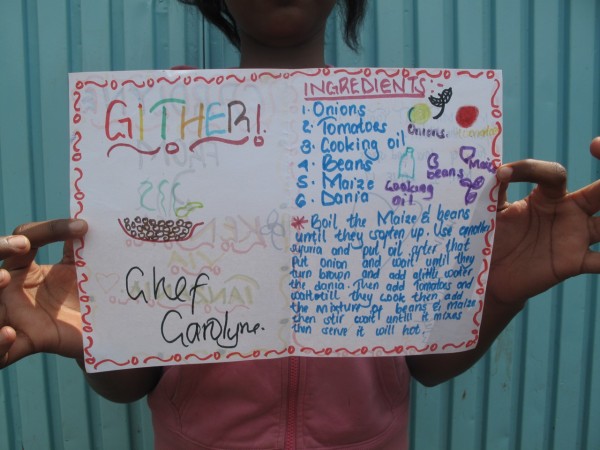 GITHERI
Chef
Carolyne.
INGREDIENTS:
1. Onions
2. Tomatoes
3. Cooking oil
4. Beans
5. Maize
6. Dania
Onions.
Maize
beans
Cooking
oil
* Boil the Maize & beans
until they soften up. Use another
sufuria and put oil after that
put onion and wait until they
turn brown and add alittle water
the dania. Then add Tomatoes and
wait till they cook then add
the mixture of beans & maize
then stir wait until it mixes
then serve it will hot.